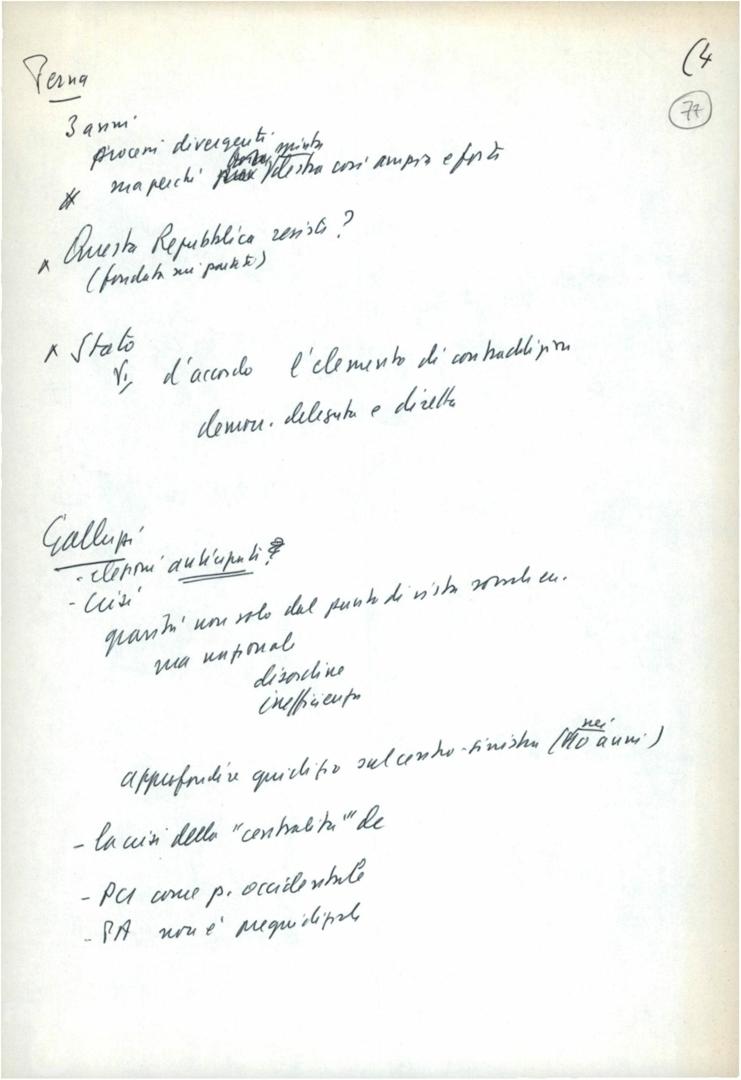 (4
77
Perna
3 anni
processi divergenti
ma perché spinta destra così ampia e forte
x Questa Repubblica resiste?
(fondata sui partiti)
x Stato
Sì, d'accordo l'elemento di contraddizione
democr. delegata e diretta
Galluzzi
- elezioni anticipate?
- Crisi
gravità non solo dal punto di vista
ma nazionale
disordine
inefficienza
approfondire giudizio sul centro-sinistra (nei 10 anni)
- la crisi della "centralità" dc
- PCI come p. occidentale
- PA non è pregiudiziale